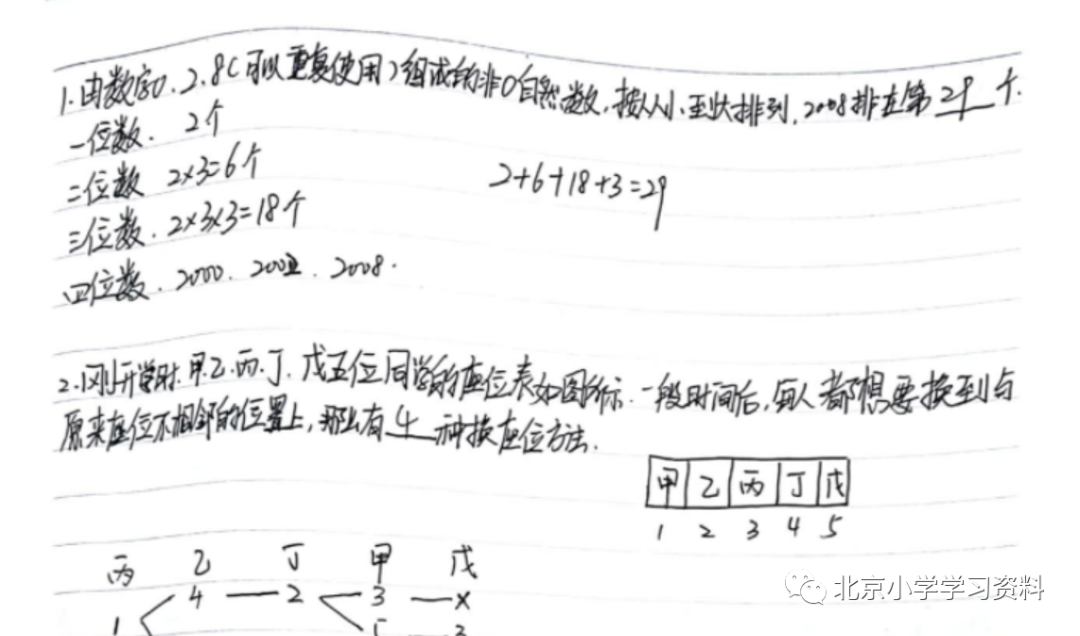 1.由数字0.2.8(可以重复使用)组成的非0自然数,按从小至大排列,2008排在第29个.
一位数. 2个
二位数 2×3=6个
2+6+18+3=29
三位数. 2×3×3=18个
四位数. 2000. 2002. 2008.
2.刚开学时.甲.乙.丙.丁.戊五位同学的座位表如图所示.一段时间后,每人都想要换到与
原来座位不相邻的位置上,那么有4种换座位方法.
甲 乙 丙 丁 戊
1 2 3 4 5
丙 乙 丁 甲 戊
4 2 3 ×
1
北京小学学习资料